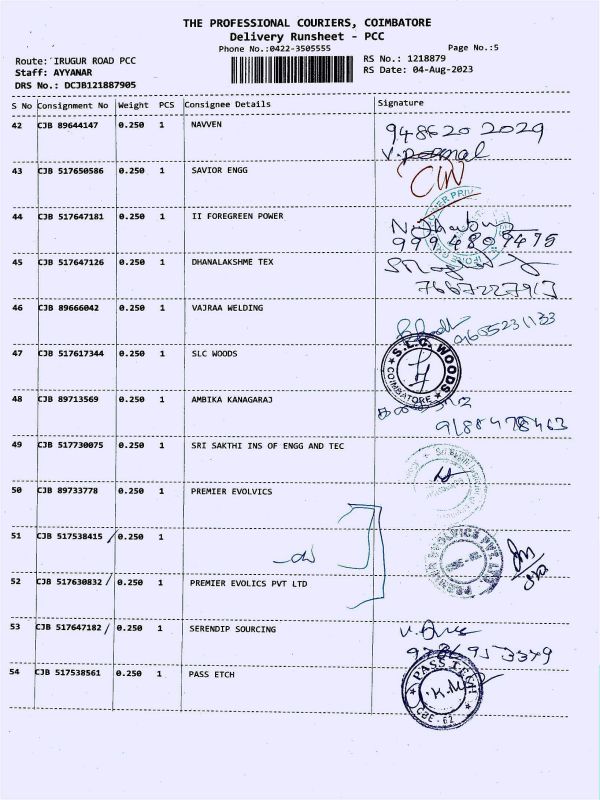 THE PROFESSIONAL COURIERS, COIMBATORE
Delivery Runsheet - PCC
Phone No.:0422-3505555
Page No.:5
Route: IRUGUR ROAD PCC
RS No.: 1218879
Staff: AYYANAR
RS Date: 04-Aug-2023
DRS No.: DCJB121887905
S No Consignment No Weight PCS Consignee Details Signature
42 CJB 89644147 0.250 1 NAVVEN
948620 2029
43 CJB 517650586 0.250 1 SAVIOR ENGG
44 CJB 517647181 0.250 1 II FOREGREEN POWER
999 4809475
45 CJB 517647126 0.250 1 DHANALAKSHME TEX
7667227913
46 CJB 89666042 0.250 1 VAJRAA WELDING
9655231133
47 CJB 517617344 0.250 1 SLC WOODS
S.L.C. WOODS
COIMBATORE
48 CJB 89713569 0.250 1 AMBIKA KANAGARAJ
9188478463
49 CJB 517730075 0.250 1 SRI SAKTHI INS OF ENGG AND TEC
50 CJB 89733778 0.250 1 PREMIER EVOLVICS
51 CJB 517538415 / 0.250 1
PREMIER EVOLVICS PVT LTD.
52 CJB 517630832 / 0.250 1 PREMIER EVOLICS PVT LTD
53 CJB 517647182 / 0.250 1 SERENDIP SOURCING
54 CJB 517538561 0.250 1 PASS ETCH
PASS TECH
K.M
CBE - 62